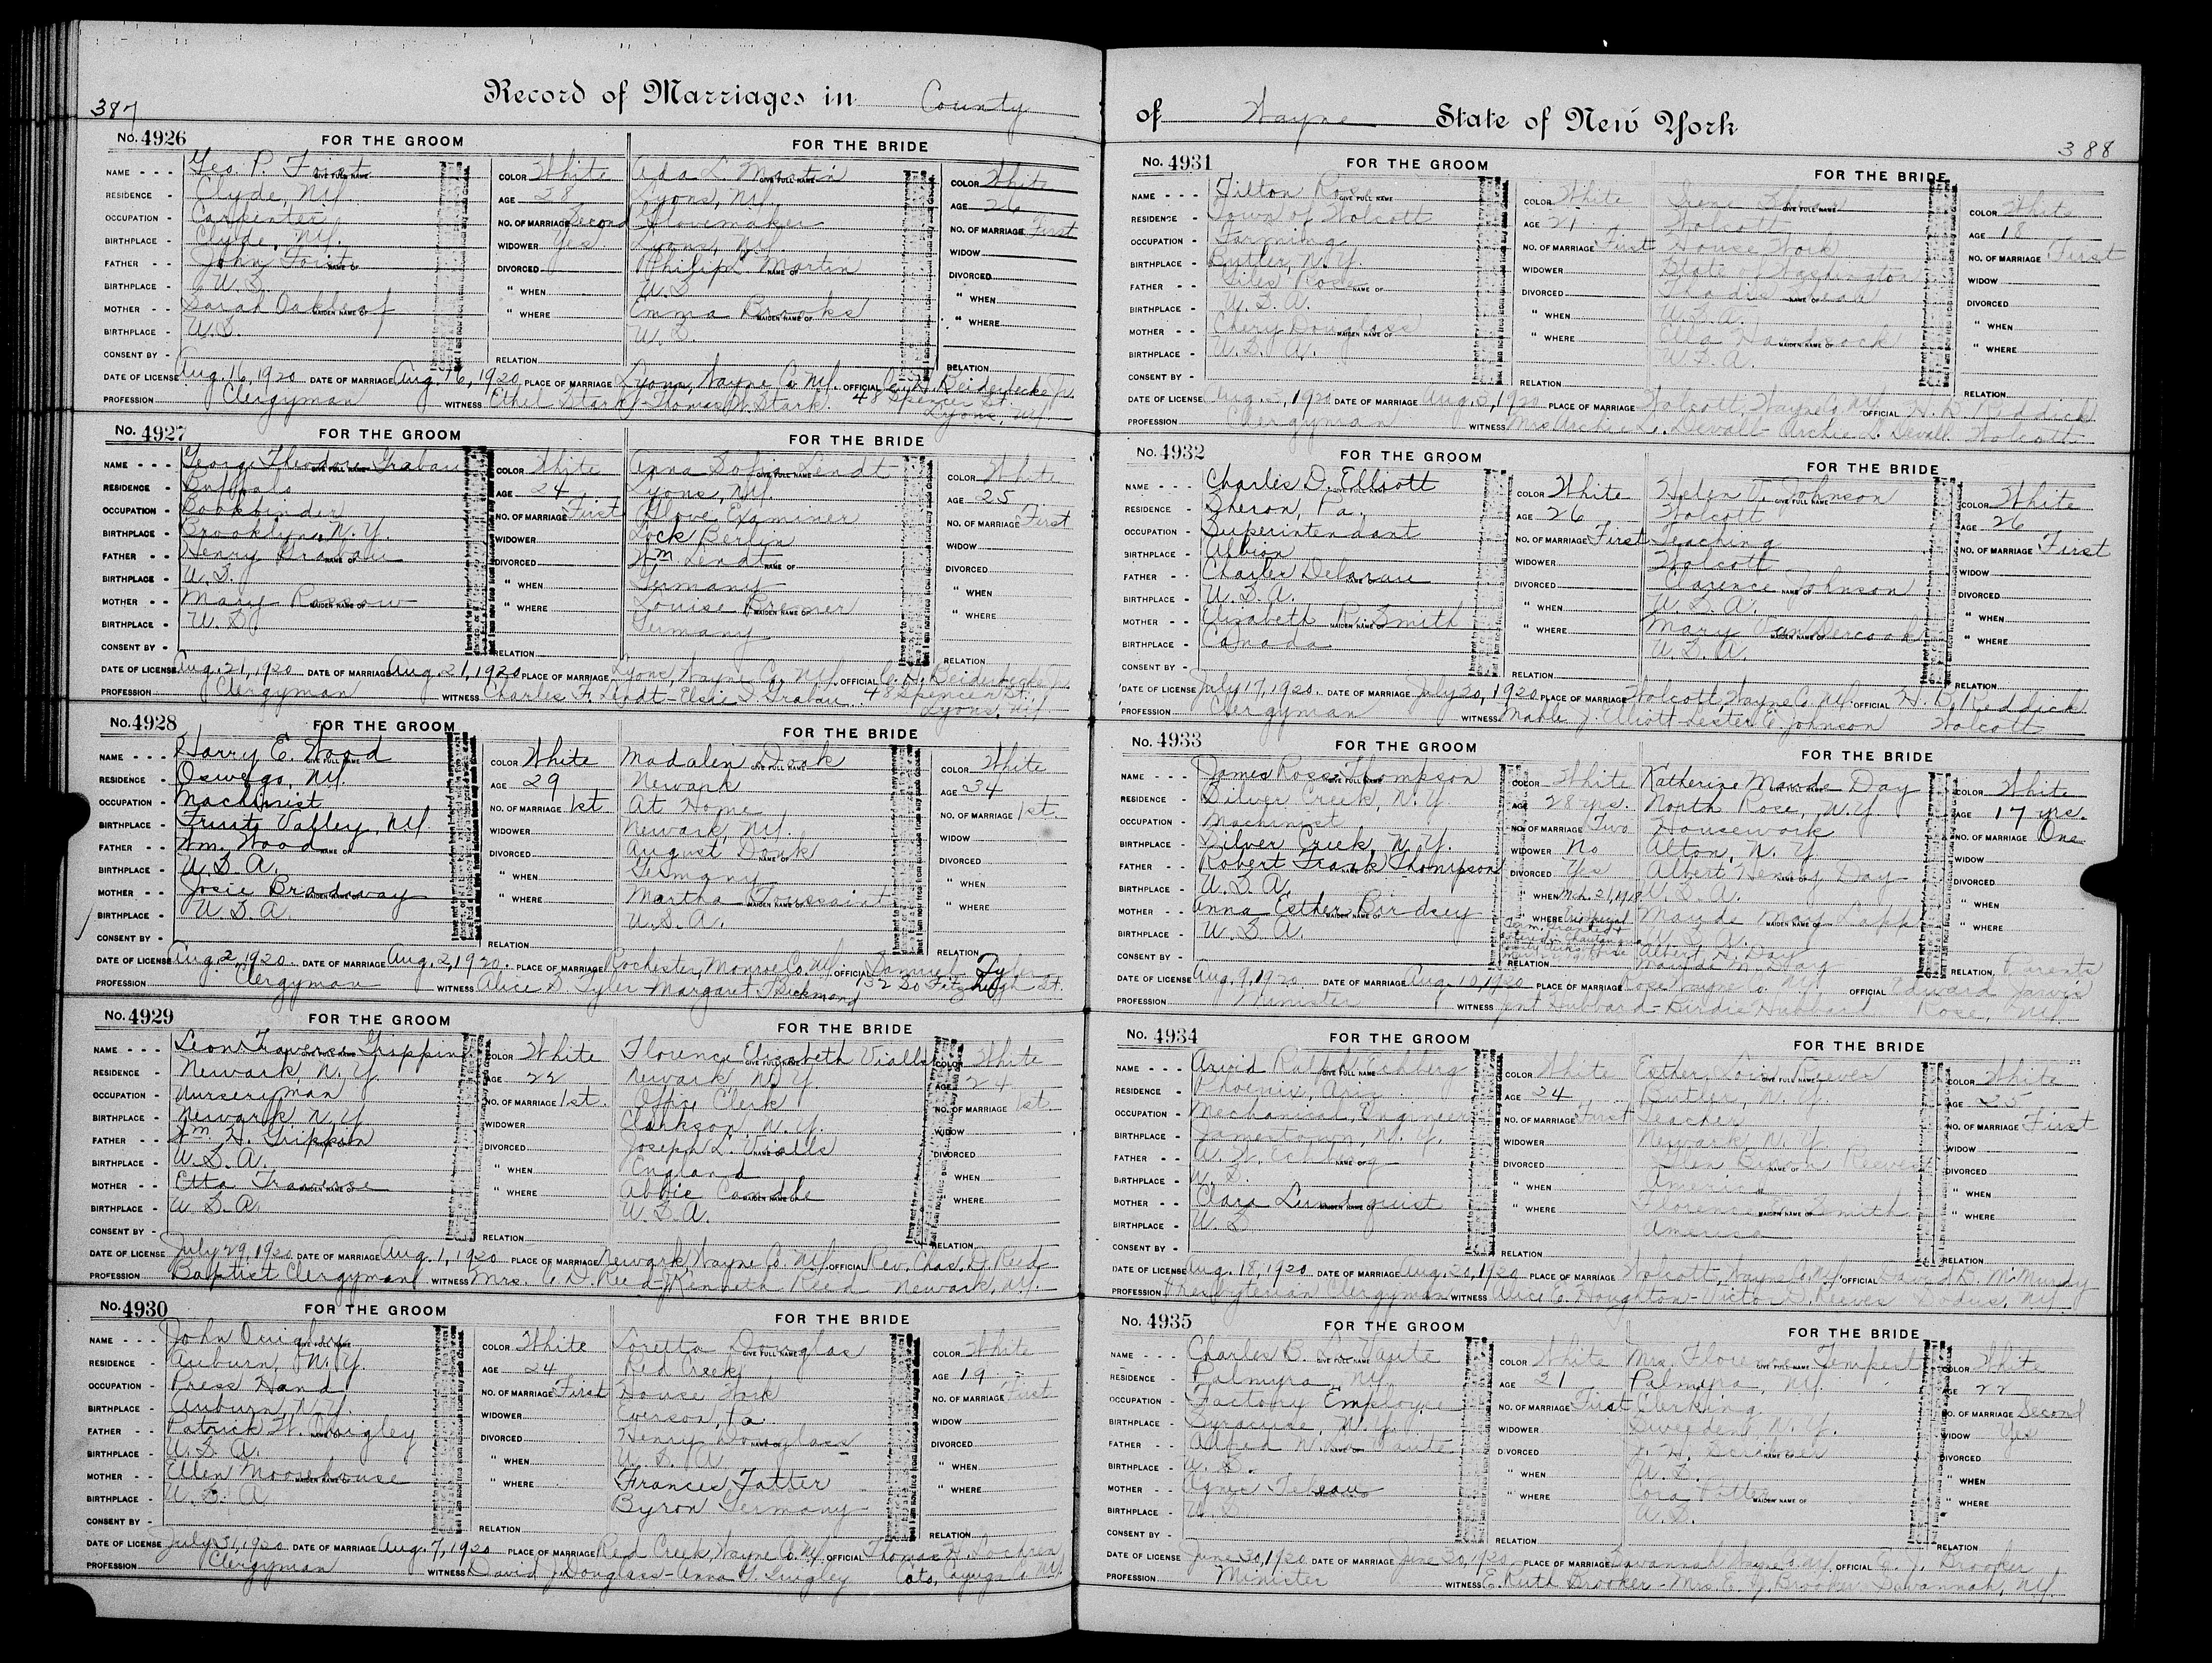 387
Record of Marriages in County
No. 4926 FOR THE GROOM FOR THE BRIDE
NAME Geo. P. Foist GIVE FULL NAME COLOR White Ada L. Martin GIVE FULL NAME COLOR White
RESIDENCE Clyde, N.Y. AGE 28 Lyons, N.Y. AGE 26
OCCUPATION Carpenter NO. OF MARRIAGE Second Glovemaker NO. OF MARRIAGE First
BIRTHPLACE Clyde, N.Y. WIDOWER Yes Lyons, N.Y. WIDOW
FATHER John Foist NAME OF DIVORCED Philip Martin NAME OF DIVORCED
BIRTHPLACE U.S. " WHEN U.S. " WHEN
MOTHER Sarah Oakleaf MAIDEN NAME OF " WHERE Emma Brooks MAIDEN NAME OF " WHERE
BIRTHPLACE U.S. U.S.
CONSENT BY RELATION RELATION
DATE OF LICENSE Aug. 16, 1920 DATE OF MARRIAGE Aug. 16, 1920 PLACE OF MARRIAGE Lyons, Wayne Co. N.Y. OFFICIAL
PROFESSION Clergyman WITNESS Ethel Stark - Thomas W. Stark. 48 Spencer St.
Lyons, N.Y.
No. 4927 FOR THE GROOM FOR THE BRIDE
NAME George Theodore Grabau GIVE FULL NAME COLOR White Anna Sofia Lendt GIVE FULL NAME COLOR White
RESIDENCE Buffalo AGE 24 Lyons, N.Y. AGE 25
OCCUPATION Bookbinder NO. OF MARRIAGE First Glove Examiner NO. OF MARRIAGE First
BIRTHPLACE Brooklyn, N.Y. WIDOWER Lock Berlin WIDOW
FATHER Henry Grabau NAME OF DIVORCED Wm Lendt NAME OF DIVORCED
BIRTHPLACE U.S. " WHEN Germany " WHEN
MOTHER Mary Rossow MAIDEN NAME OF " WHERE Louise Bremer MAIDEN NAME OF " WHERE
BIRTHPLACE U.S. Germany
CONSENT BY RELATION RELATION
DATE OF LICENSE Aug. 21, 1920 DATE OF MARRIAGE Aug. 21, 1920 PLACE OF MARRIAGE Lyons, Wayne Co. N.Y. OFFICIAL
PROFESSION Clergyman WITNESS Charles F. Lendt - Elsie S. Grabau. 48 Spencer St.
Lyons, N.Y.
No. 4928 FOR THE GROOM FOR THE BRIDE
NAME Harry E. Wood GIVE FULL NAME COLOR White Madalin Doak GIVE FULL NAME COLOR White
RESIDENCE Oswego, N.Y. AGE 29 Newark AGE 34
OCCUPATION Machinist NO. OF MARRIAGE 1st At Home NO. OF MARRIAGE 1st
BIRTHPLACE Fruit Valley, N.Y. WIDOWER Newark, N.Y. WIDOW
FATHER Wm. Wood NAME OF DIVORCED August Doak NAME OF DIVORCED
BIRTHPLACE U.S.A. " WHEN Germany " WHEN
MOTHER Josie Bradway MAIDEN NAME OF " WHERE Martha Toussaint MAIDEN NAME OF " WHERE
BIRTHPLACE U.S.A. U.S.A.
CONSENT BY RELATION RELATION
DATE OF LICENSE Aug. 2, 1920 DATE OF MARRIAGE Aug. 2, 1920. PLACE OF MARRIAGE Rochester, Monroe Co. N.Y. OFFICIAL Samuel Tyler
PROFESSION Clergyman WITNESS Alice S. Tyler - Margaret T. Richmond 132 So Fitzhugh St.
No. 4929 FOR THE GROOM FOR THE BRIDE
NAME Leon Traverse Grippin GIVE FULL NAME COLOR White Florence Elizabeth Vialls COLOR White
RESIDENCE Newark, N.Y. AGE 22 Newark, N.Y. AGE 24
OCCUPATION Nurseryman NO. OF MARRIAGE 1st. Office Clerk NO. OF MARRIAGE 1st
BIRTHPLACE Newark N.Y. WIDOWER Clarkson, N.Y. WIDOW
FATHER Wm H. Grippin DIVORCED Joseph L. Vialls NAME OF DIVORCED
BIRTHPLACE U.S.A. " WHEN England WHEN
MOTHER Etta Traverse MAIDEN NAME OF " WHERE Abbie Caudle MAIDEN NAME OF WHERE
BIRTHPLACE U.S.A. U.S.A.
CONSENT BY RELATION RELATION
DATE OF LICENSE July 29, 1920 DATE OF MARRIAGE Aug. 1, 1920 PLACE OF MARRIAGE Newark, Wayne Co. N.Y. OFFICIAL Rev. Chas. D. Reed
PROFESSION Baptist Clergyman WITNESS Mrs. C. D. Reed - Kenneth Reed Newark, N.Y.
No. 4930 FOR THE GROOM FOR THE BRIDE
NAME John Quigley GIVE FULL NAME COLOR White Loretta Douglas GIVE FULL NAME COLOR White
RESIDENCE Auburn, N.Y. AGE 24 Red Creek AGE 19
OCCUPATION Press Hand NO. OF MARRIAGE First House Work NO. OF MARRIAGE First
BIRTHPLACE Auburn, N.Y. WIDOWER Everson, Pa. WIDOW
FATHER Patrick H. Quigley DIVORCED Henry Douglass NAME OF DIVORCED
BIRTHPLACE U.S.A. " WHEN U.S.A. " WHEN
MOTHER Ellen Moorehouse MAIDEN NAME OF " WHERE Frances Tatter " WHERE
BIRTHPLACE U.S.A. Byron Germany
CONSENT BY RELATION RELATION
DATE OF LICENSE July 31, 1920 DATE OF MARRIAGE Aug. 7, 1920 PLACE OF MARRIAGE Red Creek, Wayne Co. N.Y. OFFICIAL Thomas
PROFESSION Clergyman WITNESS David J. Douglass - Anna H. Quigley Cato, Cayuga Co. N.Y.
of Wayne State of New York
388
No. 4931 FOR THE GROOM FOR THE BRIDE
NAME Tilton Rose GIVE FULL NAME COLOR White Irene GIVE FULL NAME COLOR White
RESIDENCE Town of Wolcott AGE 21 Wolcott AGE 18
OCCUPATION Farming NO. OF MARRIAGE First House Work NO. OF MARRIAGE First
BIRTHPLACE Butler, N.Y. WIDOWER State of Washington WIDOW
FATHER Giles Rose NAME OF DIVORCED NAME OF DIVORCED
BIRTHPLACE U.S.A. " WHEN U.S.A. " WHEN
MOTHER Chery Douglass MAIDEN NAME OF " WHERE MAIDEN NAME OF " WHERE
BIRTHPLACE U.S.A. U.S.A.
CONSENT BY RELATION RELATION
DATE OF LICENSE Aug. 3, 1920 DATE OF MARRIAGE Aug. 3, 1920 PLACE OF MARRIAGE Wolcott, Wayne Co. N.Y. OFFICIAL H. B. Reddick
PROFESSION Clergyman WITNESS Mrs Archie L. Devall - Archie L. Devall Wolcott
No. 4932 FOR THE GROOM FOR THE BRIDE
NAME Charles D. Elliott GIVE FULL NAME COLOR White Helen V. Johnson GIVE FULL NAME COLOR White
RESIDENCE Sheron, Pa. AGE 26 Wolcott AGE 26
OCCUPATION Superintendant NO. OF MARRIAGE First Teaching NO. OF MARRIAGE First
BIRTHPLACE Albion WIDOWER Wolcott WIDOW
FATHER Charles Delavan DIVORCED Clarence Johnson NAME OF DIVORCED
BIRTHPLACE U.S.A. " WHEN U.S.A. " WHEN
MOTHER Elizabeth R. Smith MAIDEN NAME OF " WHERE Mary VanDercook MAIDEN NAME OF " WHERE
BIRTHPLACE Canada U.S.A.
CONSENT BY RELATION RELATION
DATE OF LICENSE July 17, 1920. DATE OF MARRIAGE July 20, 1920 PLACE OF MARRIAGE Wolcott, Wayne Co. N.Y. OFFICIAL H. B. Reddick
PROFESSION Clergyman WITNESS Mable J. Elliott Lester C. Johnson Wolcott
No. 4933 FOR THE GROOM FOR THE BRIDE
NAME James Ross Thompson GIVE FULL NAME COLOR White Katherine Maude Day COLOR White
RESIDENCE Silver Creek, N.Y. AGE 28 yrs. North Rose, N.Y. AGE 17 yrs.
OCCUPATION Machinist NO. OF MARRIAGE Two Housework NO. OF MARRIAGE One
BIRTHPLACE Silver Creek, N.Y. WIDOWER No Alton, N.Y. WIDOW
FATHER Robert Frank Thompson DIVORCED Yes Albert Henry Day NAME OF DIVORCED
BIRTHPLACE U.S.A. " WHEN U.S.A. " WHEN
MOTHER Anna Esther Birdsey MAIDEN NAME OF " WHERE Maude May Lapp MAIDEN NAME OF " WHERE
BIRTHPLACE U.S.A. U.S.A.
CONSENT BY RELATION Albert H. Day
Maude M. Day RELATION Parents
DATE OF LICENSE Aug. 9, 1920 DATE OF MARRIAGE Aug. 10, 1920 PLACE OF MARRIAGE Rose, Wayne Co. N.Y. OFFICIAL Edward Jarvis
PROFESSION Minister WITNESS Hubbard - Birdie Hubbard Rose, N.Y.
No. 4934 FOR THE GROOM FOR THE BRIDE
NAME Arvid Ralph Echberg GIVE FULL NAME COLOR White Esther Lois Reeves GIVE FULL NAME COLOR White
RESIDENCE Phoenix, Ariz. AGE 24 Butler, N.Y. AGE 25
OCCUPATION Mechanical Engineer NO. OF MARRIAGE First Teacher NO. OF MARRIAGE First
BIRTHPLACE Jamestown, N.Y. WIDOWER Newark, N.Y. WIDOW
FATHER A. W. Echberg NAME OF DIVORCED Glen Byron Reeves NAME OF DIVORCED
BIRTHPLACE U.S. " WHEN America " WHEN
MOTHER Clara Lundquist MAIDEN NAME OF " WHERE Florence E. Smith MAIDEN NAME OF " WHERE
BIRTHPLACE U.S. America
CONSENT BY RELATION RELATION
DATE OF LICENSE Aug. 18, 1920 DATE OF MARRIAGE Aug. 20, 1920 PLACE OF MARRIAGE Wolcott, Wayne Co. N.Y. OFFICIAL David B. McMurdy
PROFESSION Presbyterian Clergyman WITNESS Alice E. Houghton - Victor D. Reeves Sodus, N.Y.
No. 4935 FOR THE GROOM FOR THE BRIDE
NAME Charles B. La Vaute GIVE FULL NAME COLOR White Mrs. GIVE FULL NAME COLOR White
RESIDENCE Palmyra, N.Y. AGE 21 Palmyra, N.Y. AGE 22
OCCUPATION Factory Employee NO. OF MARRIAGE First Clerking NO. OF MARRIAGE Second
BIRTHPLACE Syracuse, N.Y. WIDOWER Sweeden, N.Y. WIDOW Yes
FATHER Alfred NAME OF DIVORCED NAME OF DIVORCED
BIRTHPLACE U.S. " WHEN U.S. " WHEN
MOTHER Agnes " WHERE Cora Potter MAIDEN NAME OF " WHERE
BIRTHPLACE U.S. U.S.
CONSENT BY RELATION RELATION
DATE OF LICENSE June 30, 1920 DATE OF MARRIAGE June 30, 1920 PLACE OF MARRIAGE Savannah, Wayne Co. N.Y. OFFICIAL E. J. Brooker
PROFESSION Minister WITNESS E. Ruth Brooker - Mrs. E. J. Brooker Savannah, N.Y.